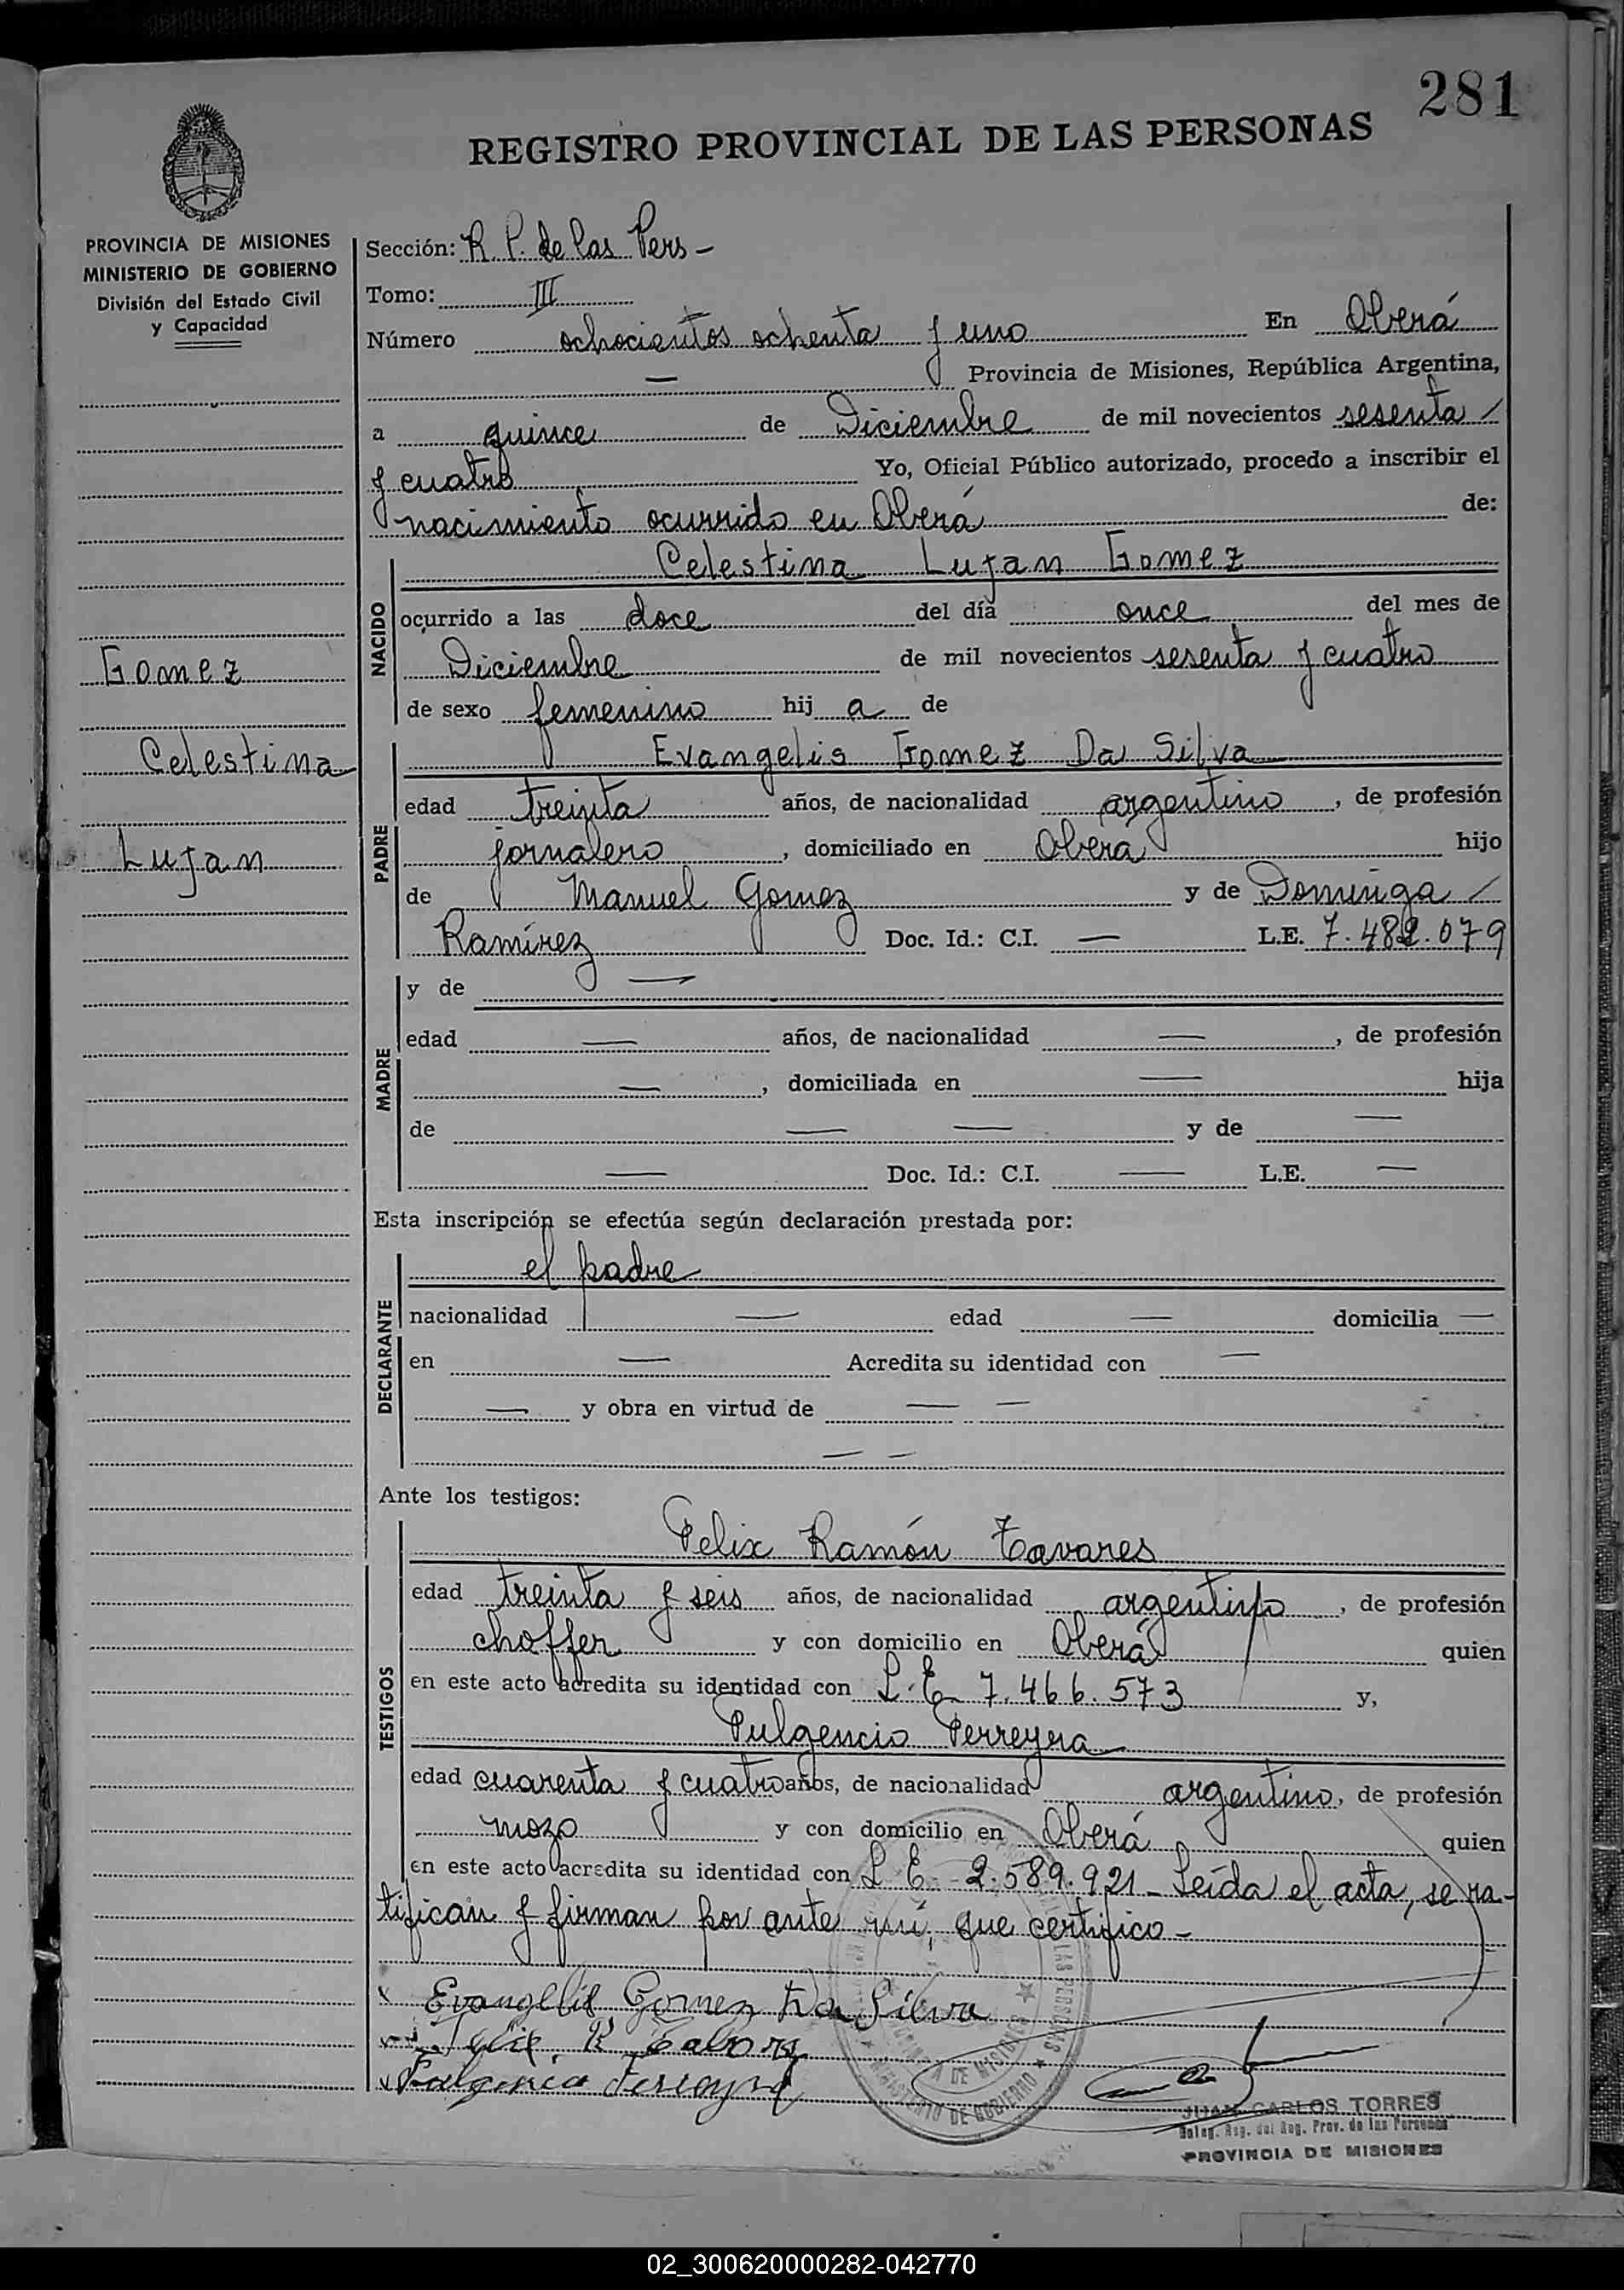 281
REGISTRO PROVINCIAL DE LAS PERSONAS
PROVINCIA DE MISIONES
MINISTERIO DE GOBIERNO
División del Estado Civil
y Capacidad
Gomez
Celestina
Lujan
Sección: R. P. de las Pers -
Tomo: III
Número ochocientos ochenta y uno En Oberá
— Provincia de Misiones, República Argentina,
a quince de Diciembre de mil novecientos sesenta /
y cuatro Yo, Oficial Público autorizado, procedo a inscribir el
nacimiento ocurrido en Oberá de:
NACIDO
Celestina Lujan Gomez
ocurrido a las doce del día once del mes de
Diciembre de mil novecientos sesenta y cuatro
de sexo femenino hij a de
PADRE
Evangelis Gomez Da Silva
edad treinta años, de nacionalidad argentino, de profesión
jornalero, domiciliado en Oberá hijo
de Manuel Gomez y de Dominga /
Ramírez Doc. Id.: C.I. — L.E. 7.482.079
MADRE
y de —
edad — años, de nacionalidad —, de profesión
—, domiciliada en — hija
de — — y de —
— Doc. Id.: C.I. — L.E. —
Esta inscripción se efectúa según declaración prestada por:
DECLARANTE
el padre
nacionalidad — edad — domicilia —
en — Acredita su identidad con —
— y obra en virtud de — —
— —
Ante los testigos:
TESTIGOS
Felix Ramón Tavares
edad treinta y seis años, de nacionalidad argentino, de profesión
choffer y con domicilio en Oberá quien
en este acto acredita su identidad con L.E 7.466.573 y,
Fulgencio Ferreyra
edad cuarenta y cuatro años, de nacionalidad argentino, de profesión
mozo y con domicilio en Oberá quien
en este acto acredita su identidad con L E 2.589.921 - Leída el acta, se ra-
tifican y firman por ante mí, que certifico -
Evangelis Gomez Da Silva
Felix R
Fulgencio Ferreyra
LAS PERSONAS
DE MISIONES
MINISTERIO DE GOBIERNO
JUAN CARLOS TORRES
Deleg. Reg. del Reg. Prov. de las Personas
PROVINCIA DE MISIONES
02_300620000282-042770